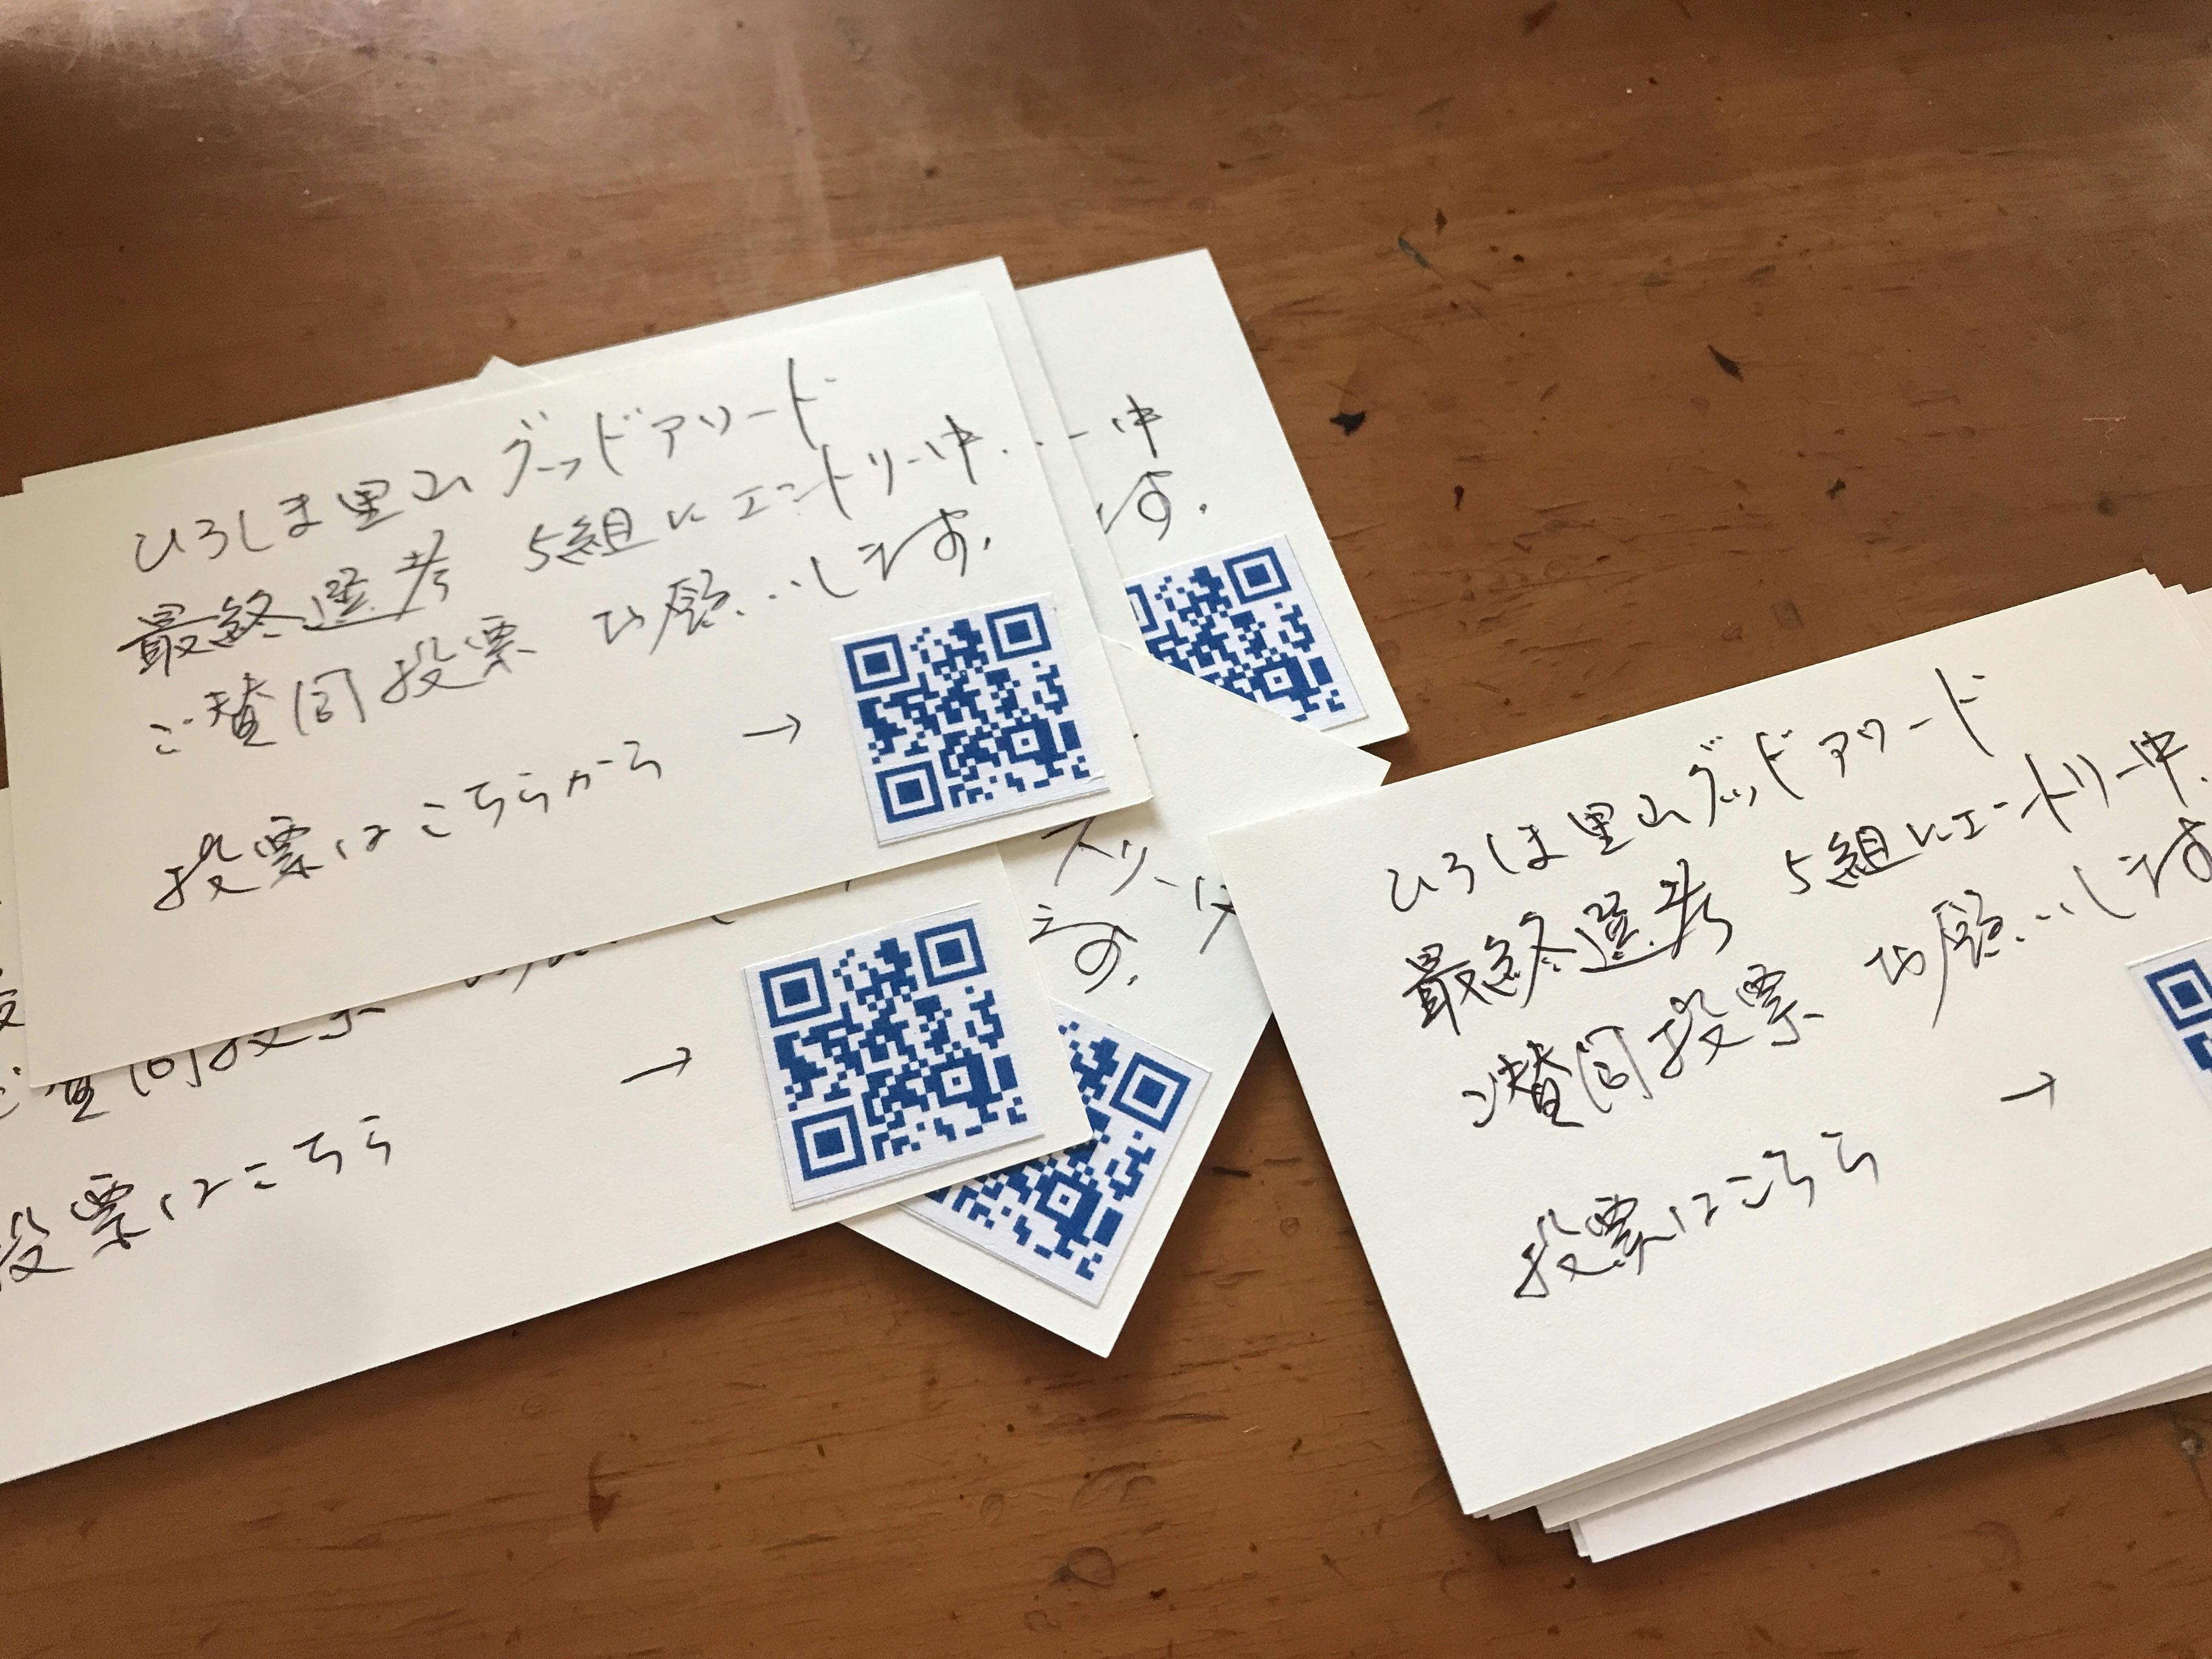 ひろしま里山グッドアワード
最終選考 5組にエントリー中.
ご賛同投票 お願いします.
投票はこちらから →
ー中
ます.
トリー中
ます.
ご賛同投票
投票はこちら →
ひろしま里山グッドアワード
最終選考 5組にエントリー中.
ご賛同投票 お願いします
投票はこちら →